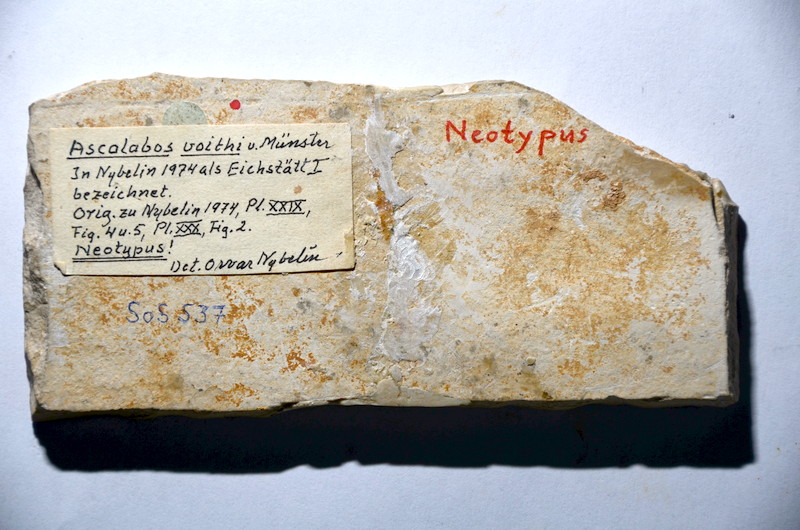 Ascalabos voithi v. Münster
In Nybelin 1974 als Eichstätt I
bezeichnet.
Orig. zu Nybelin 1974, Pl. XXIX,
Fig. 4 u. 5, Pl. XXX, Fig. 2.
Neotypus!
Det. Orvar Nybelin
Neotypus
SoS 537